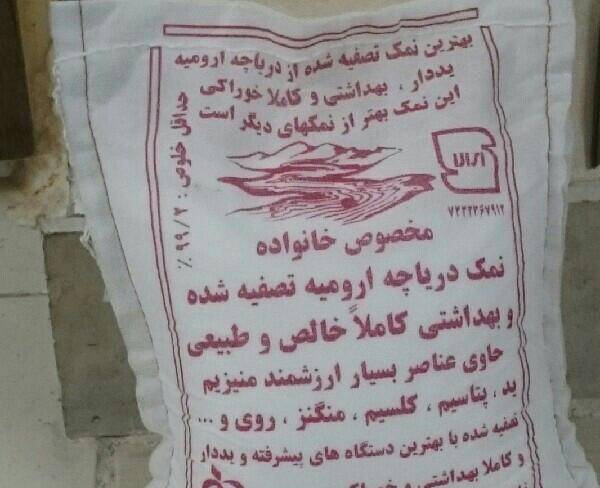 بهترین نمک تصفیه شده از دریاچه ارومیه
یددار، بهداشتی و کاملا خوراکی
این نمک بهتر از نمکهای دیگر است
حداقل خلوص : ۹۹/۲ %
مخصوص خانواده
نمک دریاچه ارومیه تصفیه شده
و بهداشتی کاملاً خالص و طبیعی
حاوی عناصر بسیار ارزشمند منیزیم
ید، پتاسیم، کلسیم، منگنز، روی و ...
تصفیه شده با بهترین دستگاه های پیشرفته و یددار
و کاملا بهداشتی و